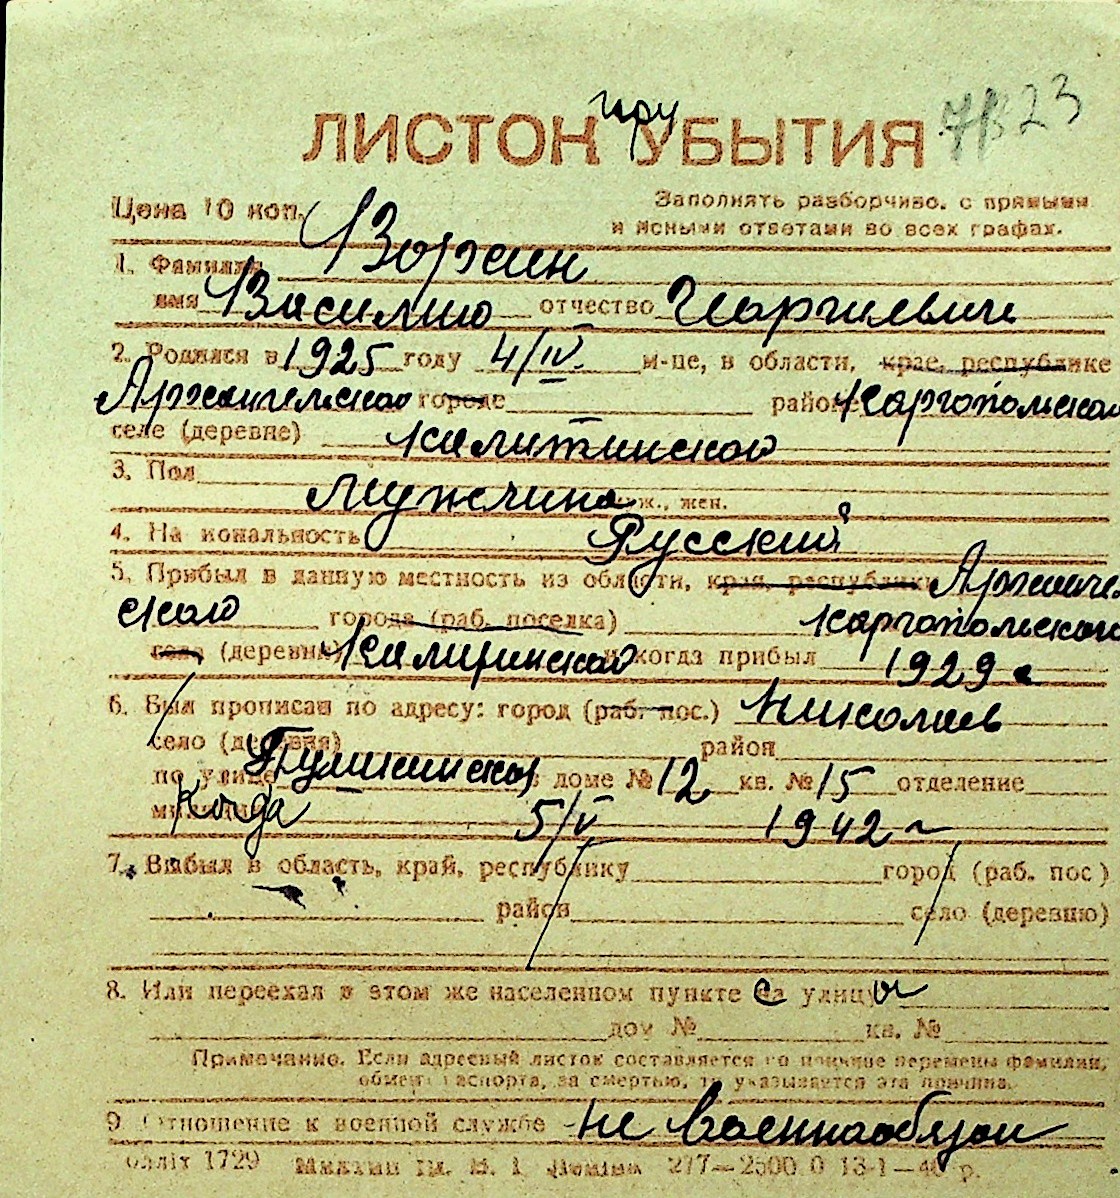 ЛИСТОК при УБЫТИЯ
Цена 10 коп.
Заполнять разборчиво, с прямыми
и ясными ответами во всех графах.
1. Фамилия
имя отчество Георгиевич
2. Родился в 1925 году 4/IV м-це, в области, крае, республике
Архангельской городе район Каргопольской
селе (деревне)
3. Пол Мужчина муж., жен.
4. Национальность Русский
5. Прибыл в данную местность из области, края, республики
ской города (раб. поселка) Каргопольского
(деревни) и когда прибыл 1929 г
6. Был прописан по адресу: город (раб. пос.) Николаев
село (деревня) район
по улице Пушкинской в доме № 12 кв. № 15 отделение
милиции Когда 5/V 1942 г
7. Выбыл в область, край, республику город (раб. пос.)
район село (деревню)
8. Или переехал в этом же населенном пункте с на улицу
дом № кв. №
Примечание. Если адресный листок составляется по причине перемены фамилии,
обмена паспорта, за смертью, то указывается эта причина.
9. Отношение к военной службе не военнообязан
1729 277—2500.0 13-1—40 р.